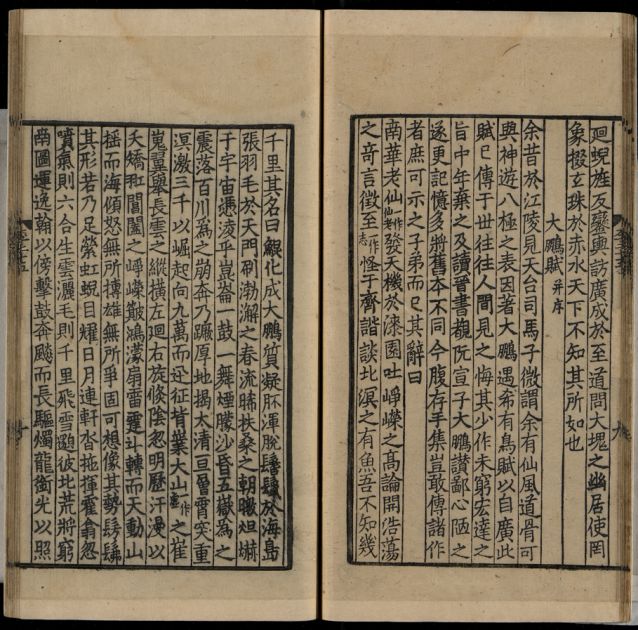 廻蜺旌反鑾輿訪廣成於至道問大塊之幽居使罔
象掇玄珠於赤水天下不知其所如也
大鵬賦 并序
余昔於江陵見天台司馬子微謂余有仙風道骨可
與神遊八極之表因著大鵬遇希有鳥賦以自廣此
賦已傳于世往往人間見之悔其少作未窮宏達之
旨中年棄之及讀晉書覩阮宣子大鵬讚鄙心陋之
遂更記憶多將舊本不同今腹存手集豈敢傳諸作
者庶可示之子弟而已其辭曰
南華老仙發天機於漆園吐崢嶸之高論開浩蕩
之奇言徵至怪于齊諧談北溟之有魚吾不知幾
千里其名曰鯤化成大鵬質凝胚渾脫鬐鬣於海島
張羽毛於天門刷渤澥之春流晞扶桑之朝暾烜爀
于宇宙憑凌乎崑崙一鼓一舞煙朦沙昏五嶽為之
震落百川為之崩奔乃蹶厚地揭太清亘層霄突重
溟激三千以崛起向九萬而迅征背嶪大山之崔
嵬翼舉長雲之縱橫左迴右旋倏陰忽明歷汗漫以
夭矯羾閶闔之崢嶸簸鴻濛扇雷霆斗轉而天動山
搖而海傾怒無所搏雄無所爭固可想像其勢髣髴
其形若乃足縈虹蜺目耀日月連軒沓拖揮霍翕忽
噴氣則六合生雲灑毛則千里飛雪邈彼北荒將窮
南圖運逸翰以傍擊鼓奔飈而長驅燭龍銜光以照